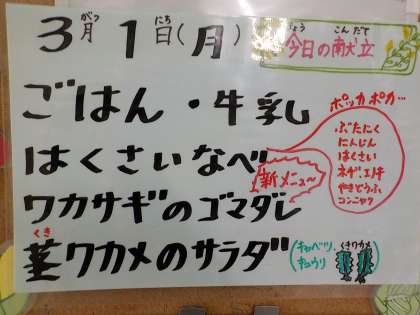 3月1日(月)
がつ にち
今日の献立
きょう こんだて
ごはん・牛乳
はくさいなべ
新メニュー
ポッカポカ
ぶたにく
にんじん
はくさい
ネギ、エノキ
やきどうふ
コンニャク
ワカサギのゴマダレ
茎ワカメのサラダ
くき
(キャベツ、
キュウリ
くきワカメ)